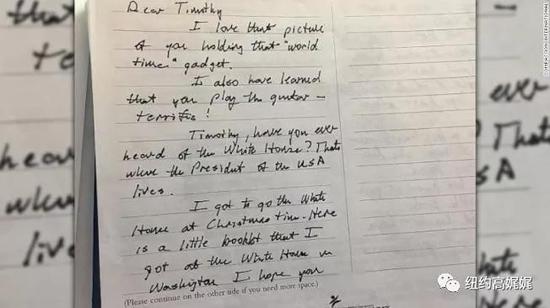 Dear Timothy
I love that picture
of you holding that "world
time" gadget.
I also have learned
that you play the guitar —
terrific!
Timothy, have you ever
heard of the White House? Thats
where the President of the USA
lives.
I got to go the White
House at Christmas time. Here
is a little booklet that I
got at the White House in
Washington I hope you
(Please continue on the other side if you need more space.)
ever
Thats
USA
hear
where
lives
纽约高娓娓